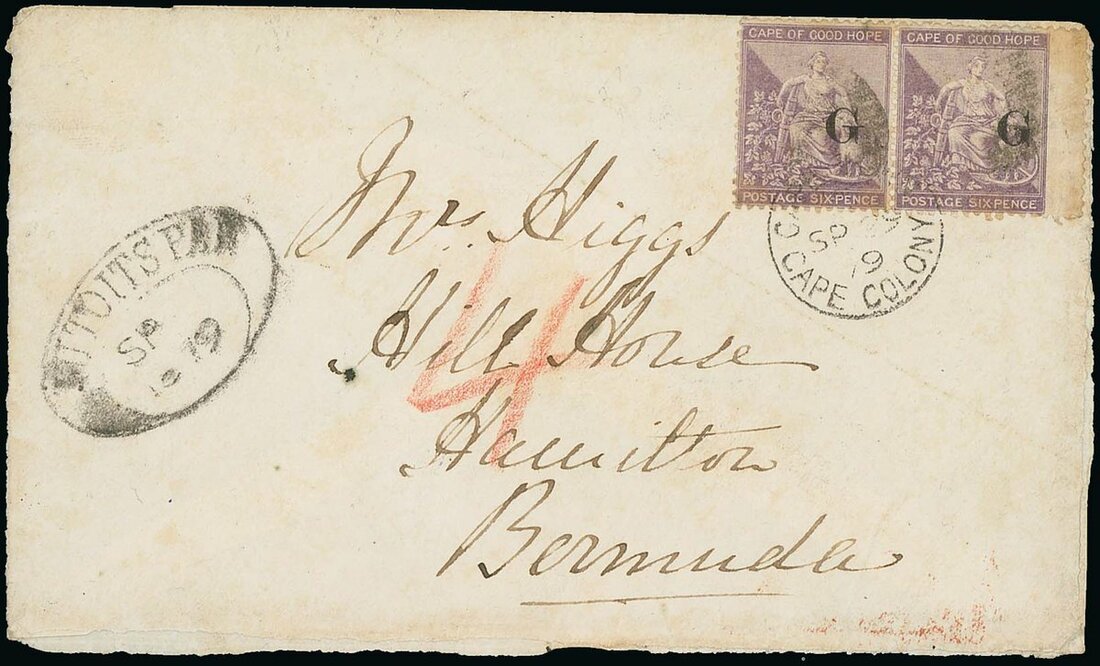 CAPE OF GOOD HOPE CAPE OF GOOD HOPE
G G
POSTAGE SIX-PENCE POSTAGE SIX-PENCE
SP
79
CAPE COLONY
SP
79
Mrs. Higgs
4
Hill House
Hamilton
Bermuda